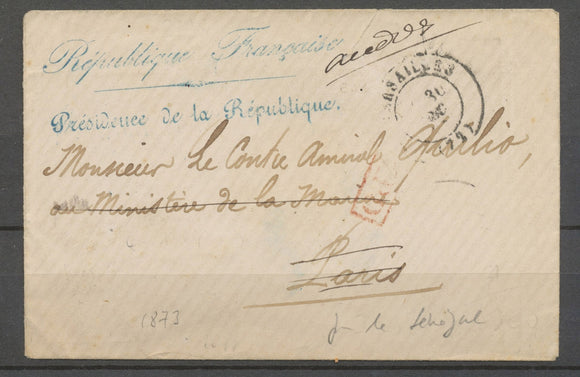 République Française
Présidence de la République.
VERSAILLES
Monsieur Le Contre Amiral
au Ministère de la Marine
Paris
1873
de Sénégal